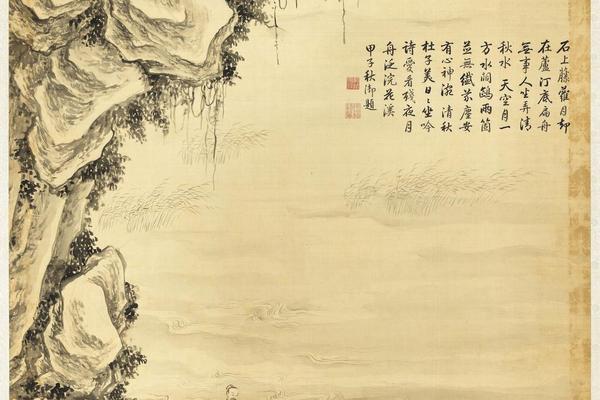 石上藤蘿月却
在蘆汀底扁舟
無事人坐弄清
秋水 天空月一
方水兩箇
並無纖芥塵安
有心神 清秋
杜子美日〻坐吟
詩愛看殘夜月
舟泛浣花溪
甲子秋御題